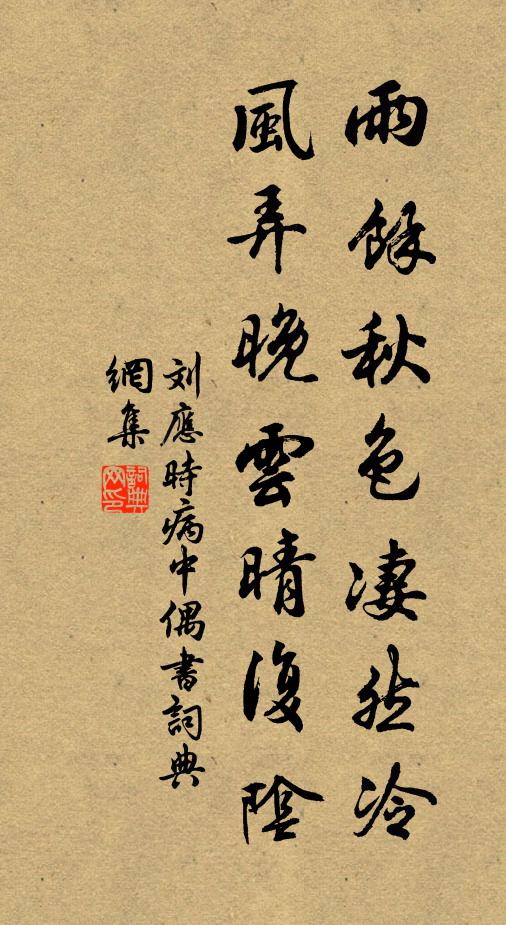 雨餘秋色淒然冷
風弄晚雲晴復陰
刘應時病中偶書詞典
網集
詞典網印